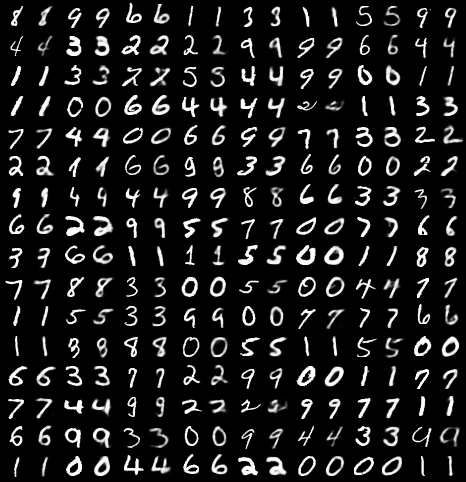 8 8 9 9 6 6 1 1 3 3 1 1 5 5 9 9
4 4 3 3 2 2 2 2 9 9 9 9 6 6 4 4
1 1 3 3 7 7 5 5 4 4 9 9 0 0 1 1
1 1 0 0 6 6 4 4 4 4 2 2 1 1 3 3
7 7 4 4 0 0 6 6 9 9 7 7 3 3 2 2
2 2 1 1 6 6 9 9 3 3 6 6 0 0 2 2
9 9 4 4 4 4 9 9 8 8 6 6 3 3 3 3
6 6 2 2 9 9 5 5 7 7 0 0 7 7 6 6
3 3 6 6 1 1 1 1 5 5 0 0 1 1 8 8
7 7 8 8 3 3 0 0 5 5 0 0 4 4 7 7
1 1 5 5 3 3 9 9 0 0 7 7 7 7 6 6
1 1 8 8 8 8 0 0 5 5 1 1 5 5 0 0
6 6 3 3 7 7 2 2 9 9 0 0 1 1 7 7
7 7 4 4 9 9 2 2 2 2 9 9 7 7 1 1
6 6 9 9 3 3 0 0 9 9 4 4 3 3 9 9
1 1 0 0 4 4 6 6 2 2 0 0 0 0 1 1